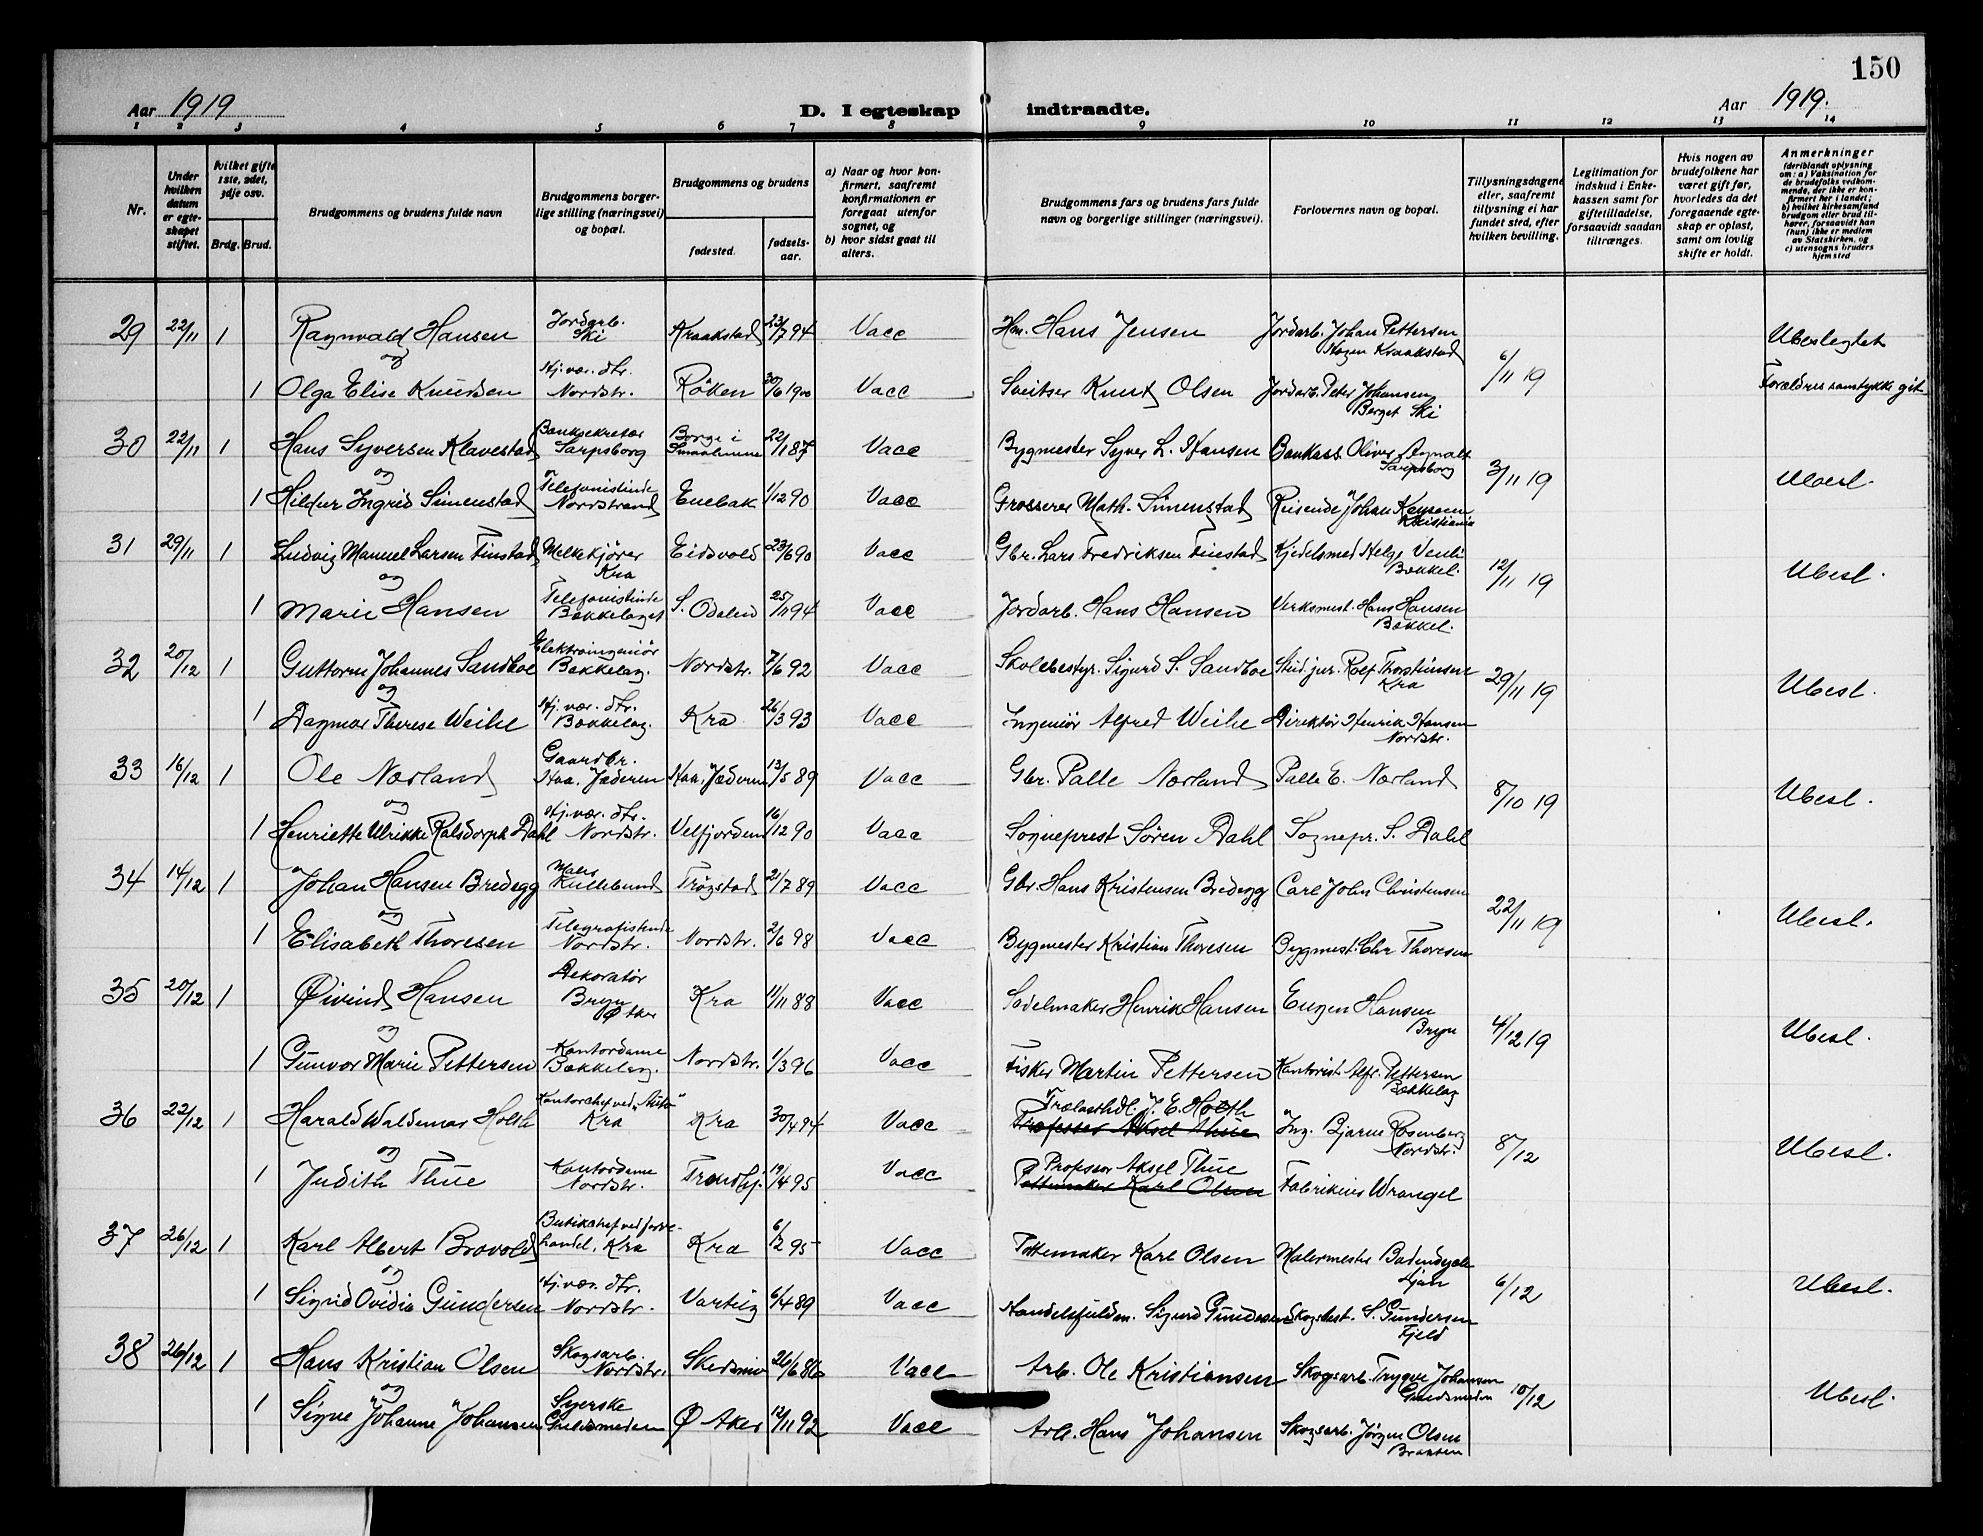 150
Aar 1919
D. I egteskap indtraadte.
Aar 1919.
1 2 3 4 5 6 7 8 9 10 11 12 13 14
Nr.
Under hvilken datum er egteskapet stiftet.
Hvilket gifte 1ste, 2det, 3dje osv.
Brdg. Brud.
Brudgommens og brudens fulde navn
Brudgommens borgerlige stilling (næringsvei) og bopæl.
Brudgommens og brudens
fødested.
fødselsaar.
a) Naar og hvor konfirmert, saafremt konfirmationen er foregaat utenfor sognet, og
b) hvor sidst gaat til alters.
Brudgommens fars og brudens fars fulde navn og borgerlige stillinger (næringsvei).
Forlovernes navn og bopæl.
Tillysningsdagene eller, saafremt tillysning ei har fundet sted, efter hvilken bevilling.
Legitimation for indskud i Enkekassen samt for giftetilladelse, forsaavidt saadan tiltrænges.
Hvis nogen av brudefolkene har været gift før, hvorledes da det foregaaende egteskap er opløst, samt om lovlig skifte er holdt.
Anmerkninger
(deriblandt oplysning om: a) Vaksination for de brudefolks vedkommende, der ikke er konfirmert her i landet; b) hvilket kirkesamfund brudgom eller brud tilhører, forsaavidt han (hun) ikke er medlem av Statskirken, og c) utensogns bruders hjemsted
29 22/11 1 Ragnvald Hansen Jordarb. Ski Kraakstad 23/7 94 Vacc Hans Jensen Jordarb. Johan Pettersen Hagen Kraakstad 6/11 19 Ubeslegtet
og
1 Olga Elise Knudsen Hj.vær. dtr. Nordstr. Röken 30/6 1900 Vacc Sveitser Knut Olsen Jordarb. Peter Johansen Berget Ski Forældres samtykke git
30 22/11 1 Hans Syversen Klavestad Banksekretær Sarpsborg Borge i Smaalenene 22/1 87 Vacc Bygmester Syver L. Hansen Bankass. Oliver Agnalt Sarpsborg 3/11 19 Ubesl.
og
1 Hildur Ingrid Simenstad Telefonistinde Nordstrand Enebak 1/12 90 Vacc Grosserer Math. Simenstad Reisende Johan Kristiania
31 29/11 1 Ludvig Manuel Larsen Finstad Melkekjører Kra Eidsvold 23/6 90 Vacc Gbr. Lars Fredriksen Finstad Kjedelsmed Helge Venli Bækkel. 12/11 19 Ubesl.
og
1 Marie Hansen Telefonistinde Bækkelaget S. Odalen 25/11 94 Vacc Jordarb. Hans Hansen Verksmest. Hans Hansen Bækkel.
32 20/12 1 Guttorm Johannes Sandboe Elektroingeniör Bækkelag. Nordstr. 7/6 92 Vacc Skolebestyr. Sigurd S. Sandboe Stud. jur. Rolf Thorsteinsen Kra 29/11 19 Ubesl.
og
1 Dagmar Therese Weihe Hj. vær. dtr. Bækkelag. Kra 26/3 93 Vacc Ingeniör Alfred Weihe Direktör Henrik Hansen Nordstr.
33 16/12 1 Ole Nærland Gaardbr. Haa, Jæderen Haa, Jæderen 13/5 89 Vacc Gbr. Palle Nærland Palle E. Nærland 8/10 19 Ubesl.
og
1 Henriette Ulrikke Rolsdorph Dahl Hj.vær. dtr. Nordstr. Velfjorden 16/12 90 Vacc Sogneprest Sören Dahl Sognepr. S. Dahl
34 14/12 1 Johan Hansen Bredegg Maler Kullebund Trögstad 21/7 89 Vacc Gbr. Hans Kristensen Bredegg Carl John Christensen 22/11 19 Ubesl.
og
1 Elisabeth Thoresen Telegrafistinde Nordstr. Nordstr. 2/6 98 Vacc Bygmester Kristian Thoresen Bygmest. Chr Thoresen
35 20/12 1 Øivind Hansen Dekoratör Bryn Ø Aker Kra 11/11 88 Vacc Sadelmaker Henrik Hansen Eugen Hansen Bryn 4/12 19 Ubesl.
og
1 Gunvor Marie Pettersen Kontordame Bækkelag. Nordstr. 1/3 96 Vacc Fisker Martin Pettersen Kontorist Alfr. Pettersen Bækkelag
36 22/12 1 Harald Waldemar Holth Kontorchef ved "Auto" Kra Kra 30/4 94 Vacc Trælasthdl. J. E. Holth Professor Aksel Thue Ing. Bjarne Rosenberg Nordstr. 8/12 Ubesl.
og
1 Judith Thue Kontordame Nordstr. Trondhj. 19/4 95 Vacc Professor Aksel Thue Pottemaker Karl Olsen Fabrikeier Wrangel
37 26/12 1 Karl Albert Bravold Butikchef ved farvehandel, Kra Kra 6/2 95 Vacc Pottemaker Karl Olsen Malermester Ljan 6/12 Ubesl.
og
1 Sigrid Ovidia Gundersen Hj.vær. dtr. Nordstr. Varteig 6/4 89 Vacc Handelsfuldm. Sigurd Gundersen Skogbest. S. Gundersen Fjeld
38 26/12 1 Hans Kristian Olsen Skogsarb. Nordstr. Skedsmo 26/6 86 Vacc Arb. Ole Kristiansen Skogsarb. Trygve Johansen Guldsmeden 10/12 Ubesl.
og
1 Signe Johanne Johansen Syerske Guldsmeden Ø Aker 12/11 92 Vacc Arb. Hans Johansen Skogsarb. Jörgen Olsen Bråten